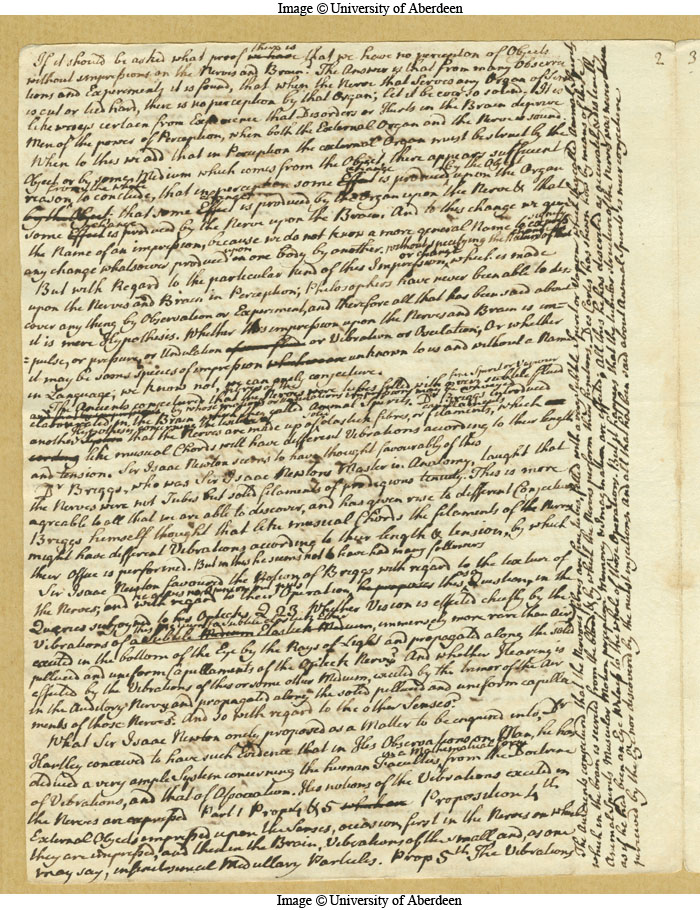 Image © University of Aberdeen
2
3
If it should be asked what proof there is that we have no perception of Objects
without impressions on the Nerves and Brain: The Answer is that from many Observa
tions and Experiments it is found, that when the Nerve that serves any Organ of Sense
is cut or tied hard, there is no perception by that Organ; let it be ever so sound. It is
likeways certain from Experience that Disorders or Hurts in the Brain deprive
Men of the power of Perception, when both the External Organ and the Nerve is sound.
When to this we add that in Perception the external Organ must be struck by the
Object or by some Medium which comes from the Object, there appears sufficient
reason to conclude, that in perception some change is produced upon the Organ
by the Object that some change is produced by the Organ upon the Nerve & that
some change is produced by the Nerve upon the Brain. And to this change we give
the Name of an impression, because we do not know a more general Name to
any change whatsoever produced upon one body by another, without specifying the Nature of that
or change
But with Regard to the particular kind of this Impression, which is made
upon the Nerves and Brain in Perception; Philosophers have never been able to dis
cover any thing by Observation or Experiment, and therefore all that has been said about
it is mere Hypothesis. Whether this impression upon the Nerves and Brain is im
=pulse, or pressure, or Undulation or Vibration or Oscillation, Or whether
it may be some Species of impression unknown to us and without a Name
in Language; we know not, we can only conjecture.
The Ancients conjectured that the Nerves were tubes filled with
elaborated in the Brain called Animal Spirits. Dr Briggs introduced
another that the Nerves are made up of elastick fibres, or filaments, which
like musical Chords will have different Vibrations according to their length
and tension. Sir Isaac Newton seems to have thought favourably of this
Dr Briggs, who was Sir Isaac Newtons Master in Anatomy, taught that
the Nerves were not Tubes but solid filaments of prodigious tenuity. This is more
agreable to all that we are able to discover, and has given rise to different Conjectures
Briggs himself thought that like musical Chords the filaments of the Nerves
might have different Vibrations according to their length & tension, by which
their Office is performed. But in this he seems not to have had many followers
Sir Isaac Newton favoured the Notion of Briggs with regard to the texture of
the Nerves; and with regard to their Operation, this Question, in the
Queries subjoyned to his Opticks, Q 23 Whether Vision is effected chiefly by the
Vibrations of Elastick Medium, immensely more rare than Air
excited in the bottom of the Eye by the Rays of Light and propagated along the solid
pellucid and uniform Capillaments of the Optick Nerves? And whether Hearing is
effected by the Vibrations of this or some other Medium, excited by the tremor of the Air
in the Auditory Nerves and propagated along the solid pellucid and uniform capilla
ments of those Nerves? And so with regard to the other Senses?
What Sir Isaac Newton onely proposed as a Matter to be enquired into, Dr
Hartley conceived to have such Evidence that in His Observations on Man, he has
deduced in a Mathematical form a very ample System concerning the human Faculties from the Doctrine
of Vibrations, and that of Association. His notions of the Vibrations excited in
the Nerves are expressed Part 1 Prop 4 & 5 Proposition 4th
External Objects impressed upon the Senses, occasion first in the Nerves on which
they are impressed, and then in the Brain, Vibrations of the small and, as one
may say, infinitesimal Medullary Particles. Prop 5th The Vibrations
The Ancients conjectured that the Nerves are fine tubes filled with a very subtile Spirit or Vapour
which in the brain is secreted from the blood & by which the Nerves perform their functions. Des Cartes has shewn how by means of these
Animal Spirits Muscular Motion, perception, memory and imagination are effected; all this he has described as distinctly
as if he had been an Eye Witness to the whole Operation. But it happens that the tubular structure of the Nerves was never
perceived by the Eye nor discovered by the nicest injections, and all that has been said about Animal Spirits is mere conjecture
Image © University of Aberdeen